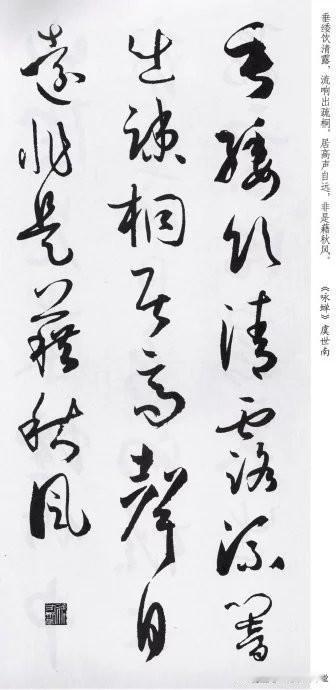 垂緌饮清露，流响出疏桐。居高声自远，非是藉秋风。 《咏蝉》虞世南
垂緌飲清露流響
出疎桐居高聲自
遠非是藉秋風